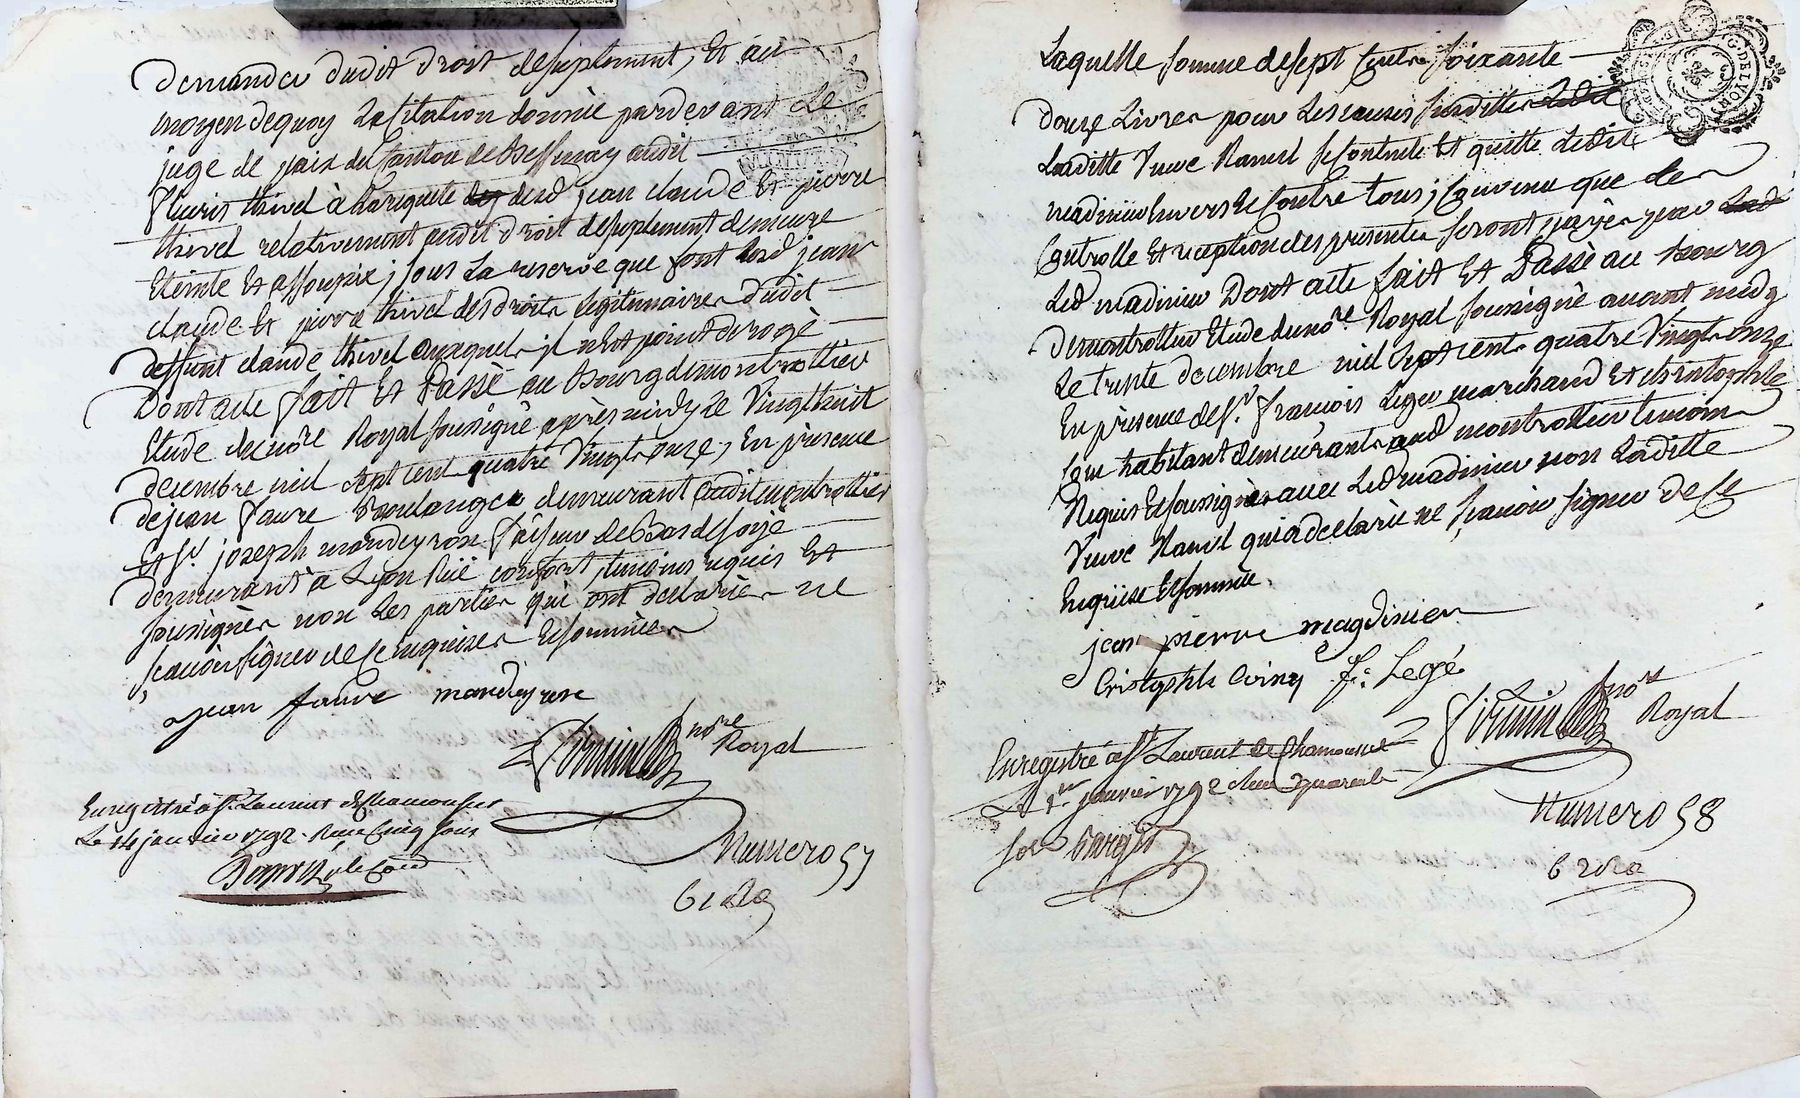 demander dudit droit desuplement, Et au
moyen dequoy La Citation donnée pardevant Le
juge de paix du Canton de Bessenay audit
fleuris thivel à Larequete desd jean claude Et pierre
thivel relativement audit droit desuplement demeure
Eteinte Et assoupie; sous La reserve que font lesd jean
claude Et pierre thivel des droits legitimaires dudit
deffunt claude thivel auxquels jl n'Est point derogé
Dont acte fait Et Passé au Bourg demontrottier
Etude denore Royal soussigné après midy Le Vingthuit
decembre mil sept cent quatre Vingt onze, En présence
dejean faure Boulanger demeurant audit montrottier
Et Sr. joseph mondeyron faiseur de Bas desoye
demeurant à Lyon Rüe confort, temoins requis Et
soussignés non Les parties qui ont declarées ne
scavoir signer de Ce enquises Et sommées
jean faure mondeyron
nore Royal
Enregistré à St. Laurent de chamousset
Le 14 janvier 1792. Reçu Cinq sous
Numero 57
Laquelle somme desept Cents soixante
douze Livres pour Les causes susdittes
Laditte Veuve Ramel se contente Et quitte Ledit
madinier Envers Et Contre tous; Convenu que les
Controlle Et reception des presentes seront payés par
Led madinier Dont acte fait Et Passé au Bourg
demontrottier Etude dunore. Royal soussigné avant midy
Le trente decembre mil sept cents quatre Vingt onze
En présence de Sr. francois Leger marchand Et christophle
habitant demeurants aud montrottier temoins
Requis Et soussignés avec Led madinier non Laditte
Veuve Ramel qui a declarée ne scavoir signer de Ce
Enquise Et sommée.
jean pierre magdinier
Cristophle f. Legé
nore Royal
Enregistré à St Laurent de Chamousset
Le janvier 1792 Reçu quarante
sols
Numero 58